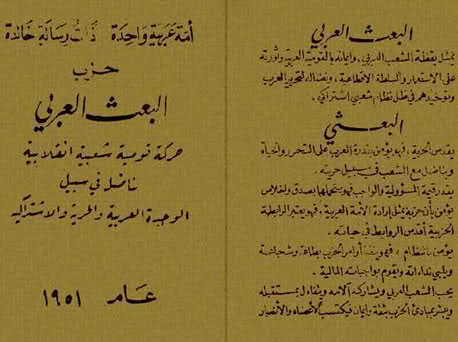 البعث العربي
يمثل يقظة الشعب العربي، وايمانه بالقومية العربية وثورته
على الاستعمار والسلطة الاقطاعية، ونضاله لتحرير العرب
وتوحيدهم في ظل نظام شعبي اشتراكي.
البعثي
يقدس الحرية، فهو يؤمن بقدرة العرب على التحرر والحياة
ويناضل مع الشعب في سبيل حريته.
يقدر قيمة المسؤولية والواجب فهو يتحملها بصدق واخلاص
يؤمن بأن حزبه يمثل ارادة الأمة العربية، فهو يعتبر الرابطة
الحزبية أقدس الروابط في حياته.
يؤمن بالنظام، فهو ينفذ أوامر الحزب بطاعة وشجاعة
ويلبي نداءاته ويقوم بواجباته المالية.
يحب الشعب العربي ويشاركه آلامه ويتفاءل بمستقبله
ويبشر بمبادئ الحزب بثقة وايمان فيكتسب الأعضاء والأنصار
أمة عربية واحدة ذات رسالة خالدة
حزب
البعث العربي
حركة قومية شعبية انقلابية
تناضل في سبيل
الوحدة العربية والحرية والاشتراكية
عام ١٩٥١